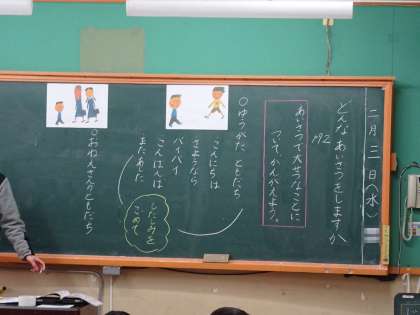 二月三日(水)
どんなあいさつをしますか
P92
あいさつで大せつなことに
ついて、かんがえよう。
○ゆうがた ともだち
こんにちは
さようなら
バイバイ
こんばんは
またあした
したしみを
こめて
○おねえさんのともだち